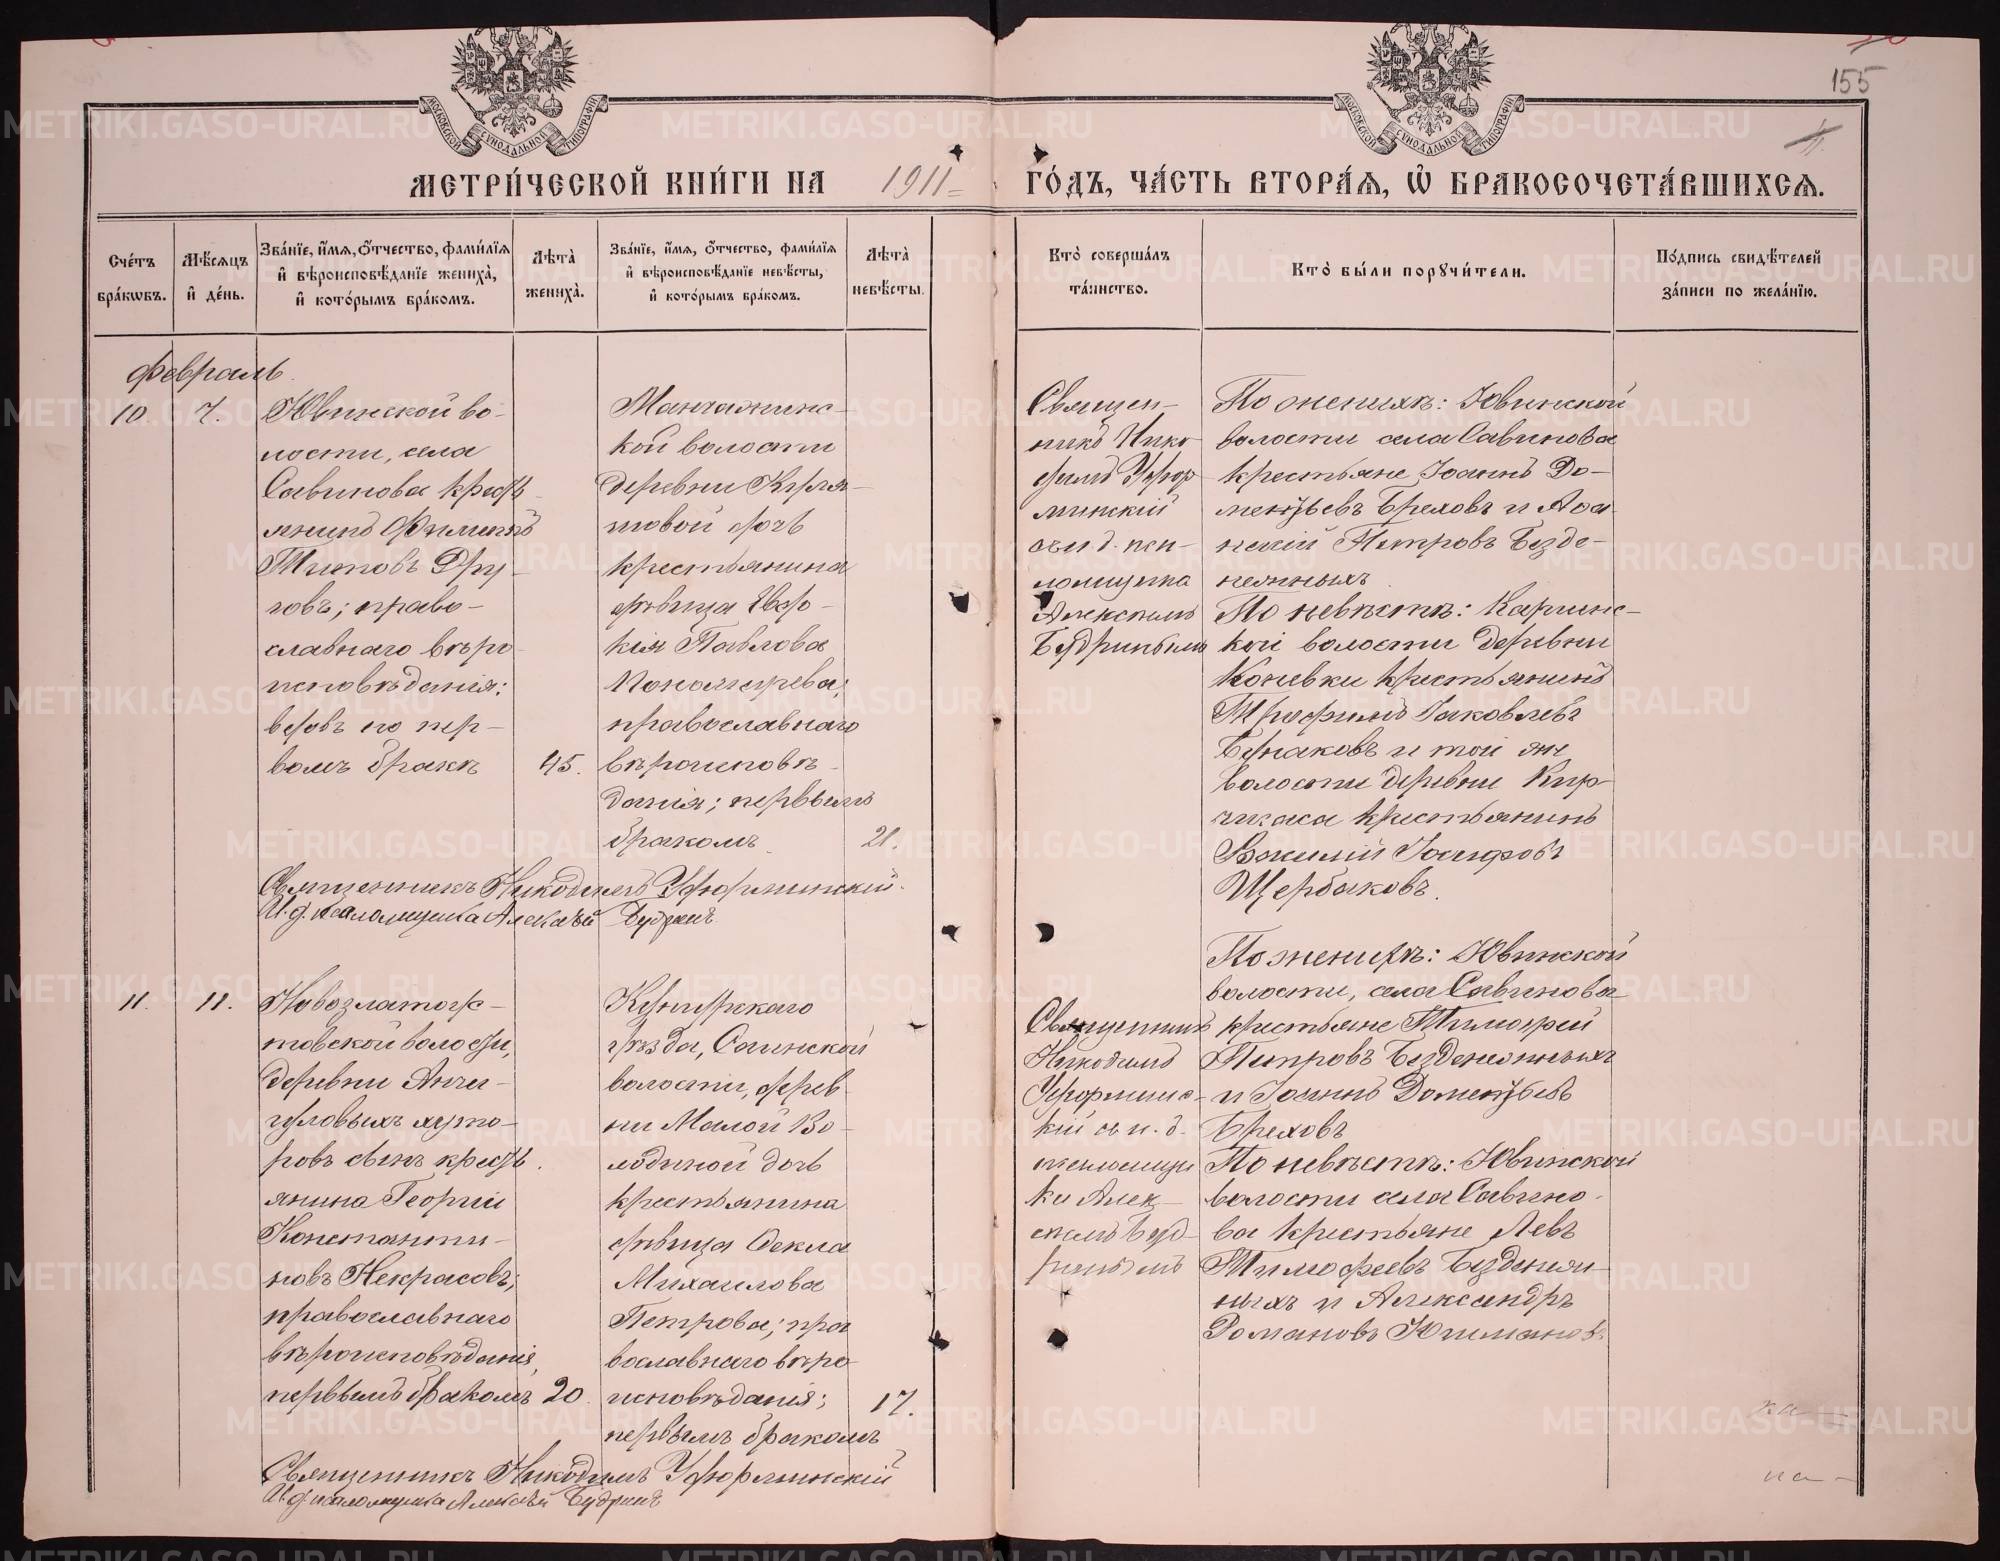 155
МЕТРИ́ЧЕСКОЙ КНИ́ГИ НА 1911 ГО́ДЪ, ЧА́СТЬ ВТОРА́Я, Ѡ БРАКОСОЧЕТА́ВШИХСЯ.
Сче́тъ
бра́кѡвъ.
Мѣ́сяцъ
и де́нь.
Зва́нїе, и́мя, о́тчество, фами́лїя
и вѣроисповѣ́данїе жениха̀,
и кото́рымъ бра́комъ.
Лѣ́та̀
жениха̀.
Зва́нїе, и́мя, о́тчество, фами́лїя
и вѣроисповѣ́данїе невѣ́сты,
и кото́рымъ бра́комъ.
Лѣ́та̀
невѣ́сты.
Кто̀ соверша́лъ
та́инство.
Кто̀ бы́ли порꙋчи́тели.
По́дпись свидѣ́телей
за́писи по жела́нїю.
Февраль
10.
7.
Ювинской во-
лости, села
Савинова кресть
янинъ Филиппъ
Титовъ Дру-
говъ; право-
славнаго вѣро
исповѣданія;
вдовъ по пер-
вомъ бракѣ
45.
Манчажинс-
кой волости
деревни
товой дочь
крестьянина
дѣвица Евдо-
кія Павлова
Пономарева;
православнаго
вѣроисповѣ-
данія; первымъ
бракомъ
21.
Священ-
никъ Нико
димъ Уфор
минскій
съ и.д. пса-
ломщика
Алексѣемъ
Будринымъ
По женихѣ: Ювинской
волости села Савинова
крестьяне Іоаннъ До-
ментьевъ Бреховъ и Афа
насій Петровъ Безде-
нежныхъ
По невѣстѣ: Каргинс-
кой волости деревни
Коневки крестьянинъ
Трофимъ Іаковлевъ
и той же
волости деревни Кир-
чигаса крестьянинъ
Василій Іосифовъ
Щербаковъ.
Священникъ Никодимъ Уформинскій.
И. д. псаломщика Алексѣй Будринъ
11.
11.
Новозлатоус-
товской волости,
деревни Анчи-
гуловыхъ хуто-
ровъ сынъ кресть
янина Георгій
Константи-
новъ Некрасовъ;
православнаго
вѣроисповѣданія,
первымъ бракомъ
20.
Кунгурскаго
уѣзда, Сосинской
волости, дерев-
ни Малой Во-
лодиной дочь
крестьянина
дѣвица Ѳекла
Михаилова
Петрова; пра
вославнаго вѣро
исповѣданія;
первымъ бракомъ
17.
Священникъ
Никодимъ
Уформинс-
кій съ и. д.
псаломщи
ка Алек-
сѣемъ Буд-
ринымъ
По женихѣ: Ювинской
волости, села Савинова
крестьяне Тимофей
Петровъ Безденежныхъ
и Іоаннъ Доментьевъ
Бреховъ
По невѣстѣ: Ювинской
волости села Савино-
ва крестьяне Левъ
Тимофеевъ Безденеж-
ныхъ и Александръ
Романовъ
Священникъ Никодимъ Уформинскій
И. д. псаломщика Алексѣй Будринъ
METRIKI.GASO-URAL.RU